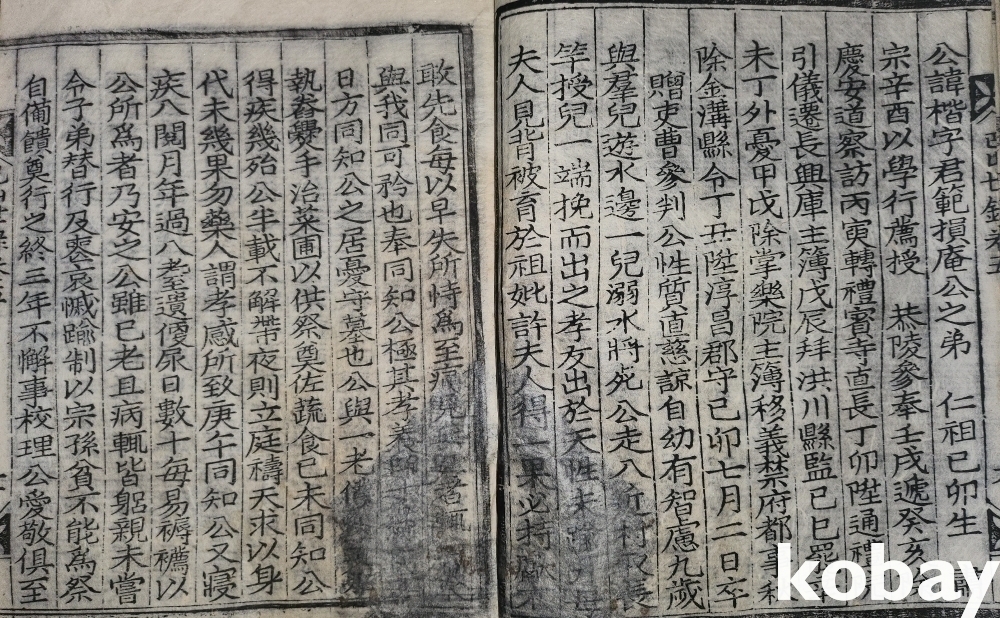 公諱楷字君範損庵公之弟 仁祖己卯生
宗辛酉以學行薦授 恭陵參奉壬戌遞癸亥
慶安道察訪丙寅轉禮賓寺直長丁卯陞通禮
引儀遷長興庫主簿戊辰拜洪川縣監己巳罷
未丁外憂甲戌除掌樂院主簿移義禁府都事
除金溝縣令丁丑陞淳昌郡守己卯七月二日卒
贈吏曹參判公性質直慈諒自幼有智慮九歲
與羣兒遊水邊一兒溺水將死公走入 長
竿授兒一端挽而出之孝友出於天性未
夫人見背被育於祖妣許夫人得一果必持
敢先食每以早失所恃爲至痛
與我同可矜也奉同知公極其孝
日方同知公之居憂守墓也公與一老
執爨變手治菜圃以供祭奠佐蔬食己未同知公
得疾幾殆公半載不解帶夜則立庭禱天求以身
代未幾果勿藥人謂孝感所致庚午同知公又寢
疾八閱月年過八耋遺便尿日數十每易褥襪以
公所爲者乃安之公雖已老且病輒皆躬親未嘗
令子弟替行及喪哀慽踰制以宗孫貧不能爲祭
自備饋奠行之終三年不懈事校理公愛敬俱至
kobay